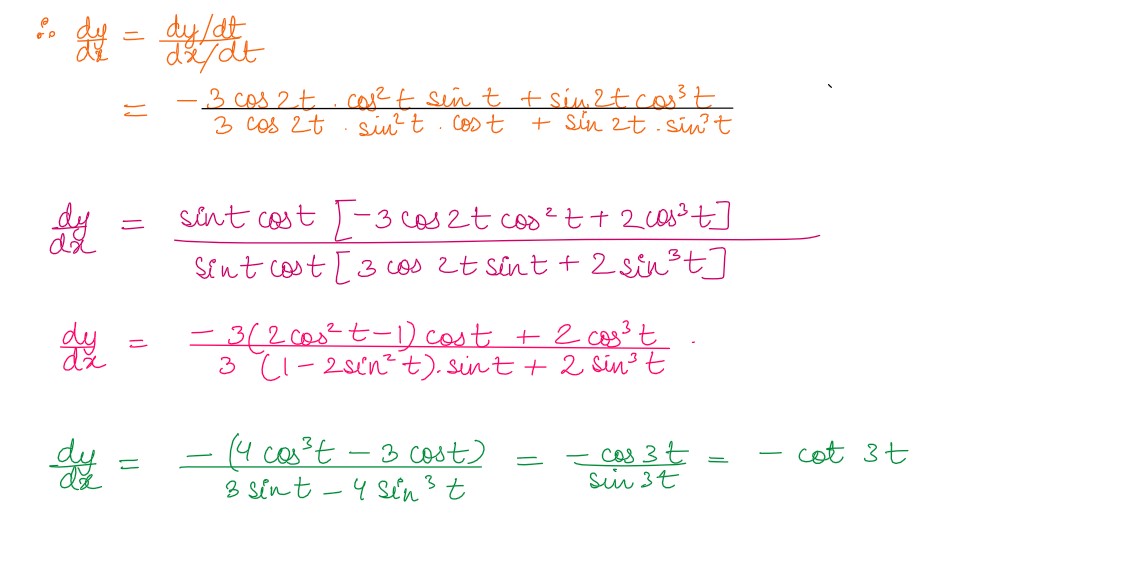 ∴ dy/dx = (dy/dt)/(dx/dt)
= (-3 cos 2t . cos² t sin t + sin 2t cos³ t)/(3 cos 2t . sin² t . cos t + sin 2t . sin³ t)
dy/dx = (sin t cos t [-3 cos 2t cos² t + 2 cos³ t])/(sin t cos t [3 cos 2t sin t + 2 sin³ t])
dy/dx = (-3(2 cos² t - 1) cos t + 2 cos³ t)/(3 (1 - 2 sin² t). sin t + 2 sin³ t) .
dy/dx = (-(4 cos³ t - 3 cos t))/(3 sin t - 4 sin³ t) = (-cos 3t)/(sin 3t) = - cot 3t